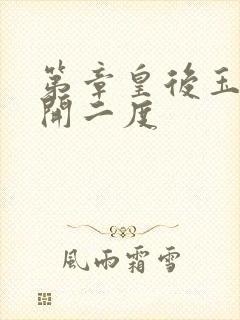 第章皇後玉
開二度
風雨霜雪